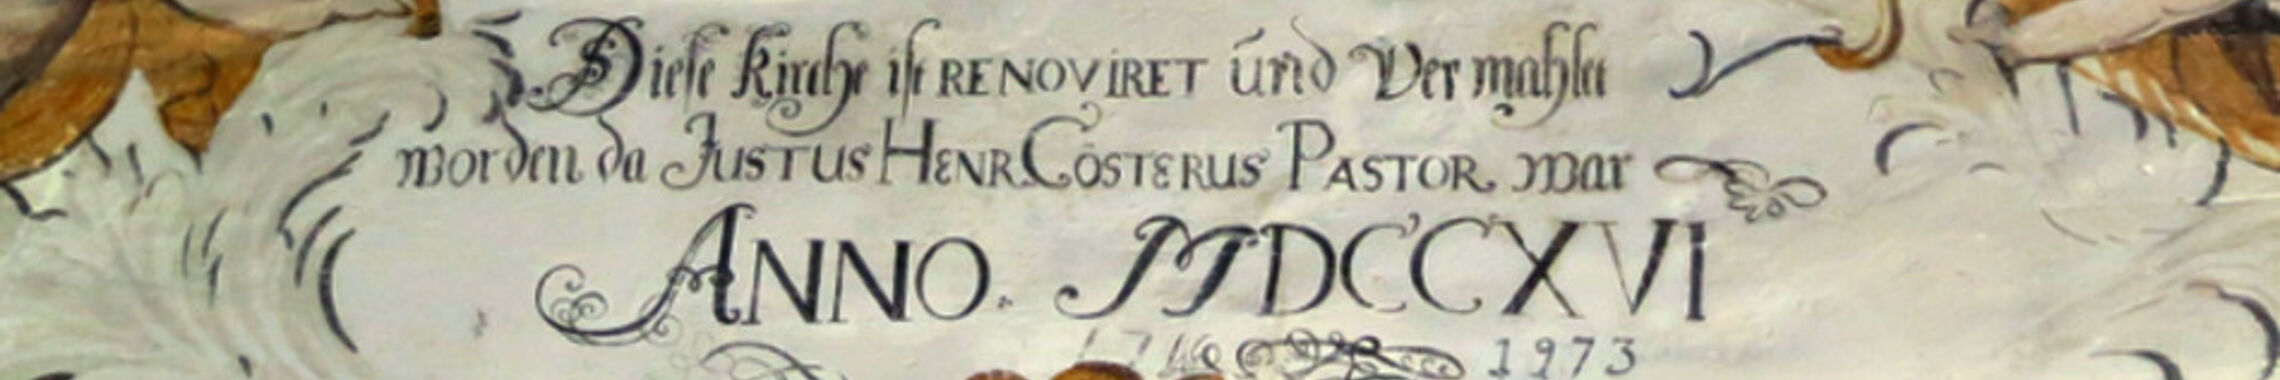 Diese Kirche ist RENOVIRET und Vermahlet
worden da JUSTUS HENR. COSTERUS PASTOR war
ANNO. MDCCXVI
1716 1973